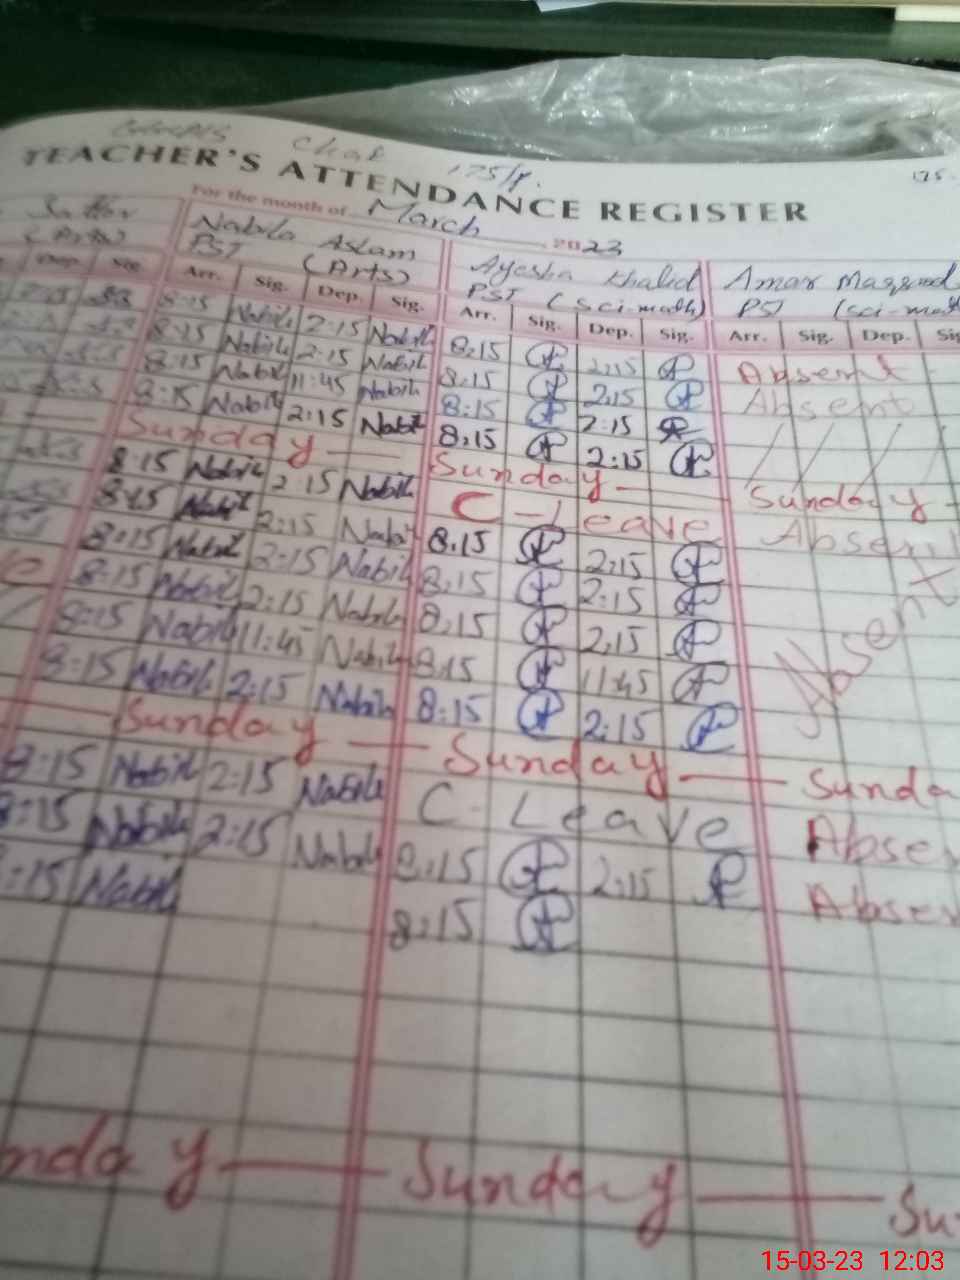 Chak 175/P.
TEACHER'S ATTENDANCE REGISTER
For the month of March 2023
Nabila Aslam Ayesha Khalid Amar
PST (Arts) PST (Sci-math) PST (sci-mat
Dep. Sig. Arr. Sig. Dep. Sig. Arr. Sig. Dep. Sig. Arr. Sig. Dep. Sig
8:15 Nabila 2:15 Nabila 8:15 2:15 Absent
8:15 Nabila 2:15 Nabila 8:15 2:15 Absent
8:15 Nabila 11:45 Nabila 8:15 2:15
8:15 Nabila 2:15 Nabila 8:15 2:15
Sunday Sunday Sunday
8:15 Nabila 2:15 Nabila C-Leave Absent
8:15 Nabila 2:15 Nabila 8:15 2:15 Absent
8:15 Nabila 2:15 Nabila 8:15 2:15
8:15 Nabila 2:15 Nabila 8:15 2:15
8:15 Nabila 11:45 Nabila 8:15 11:45
8:15 Nabila 2:15 Nabila 8:15 2:15
Sunday Sunday Sunda
8:15 Nabila 2:15 Nabila C-Leave Absen
8:15 Nabila 2:15 Nabila 8:15 2:15 Absen
:15 Nabila 8:15
nday Sunday Su
15-03-23 12:03